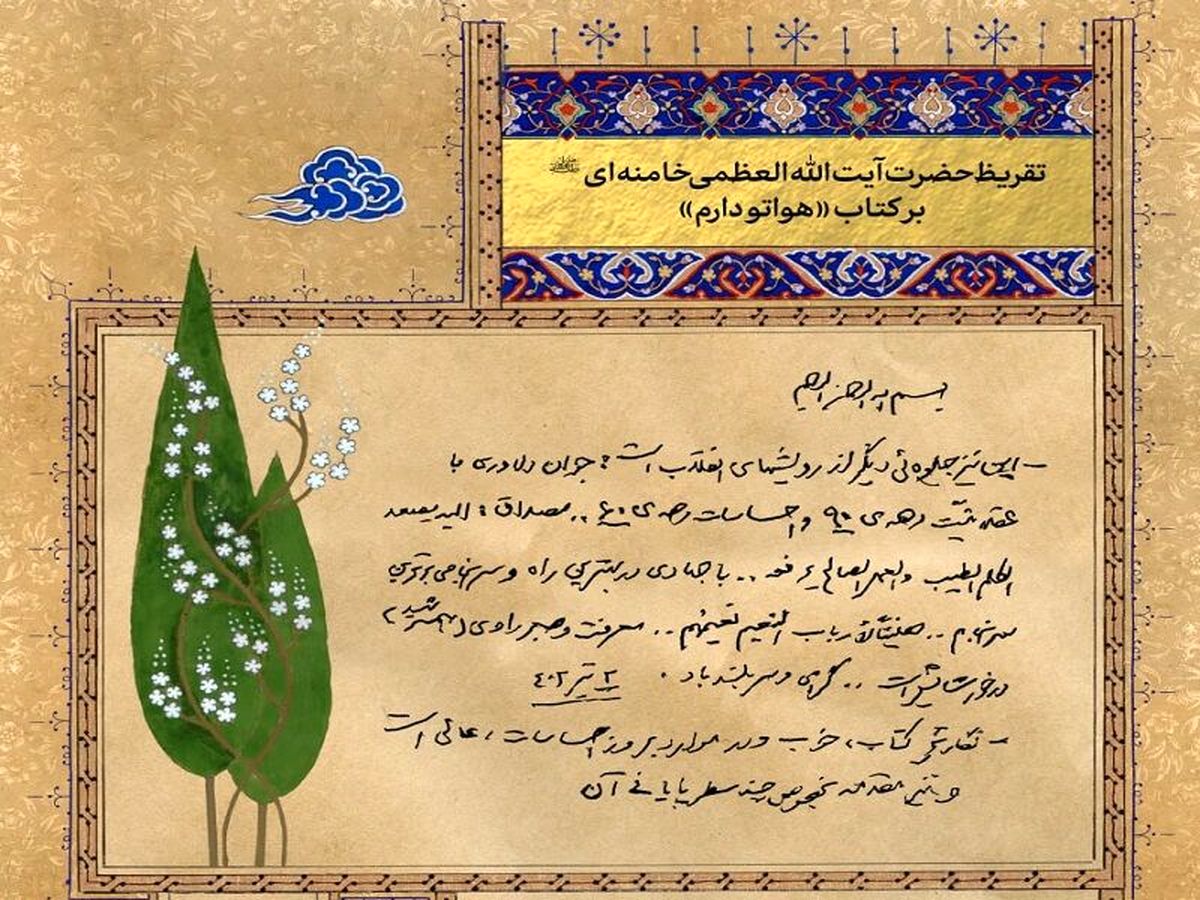 تقریظ حضرت آیت‌الله‌العظمی خامنه‌ای
بر کتاب «هواتو دارم»
بسم الله الرحمن الرحیم
- این نیز جلوه‌ئی دیگر از رویشهای انقلاب است؛ جوان دلاوری با
دهه‌ی ۹۰ و احساسات دهه‌ی ۶۰ .. مصداق: الیه یصعد
الکلم الطیب و العمل الصالح یرفعه .. با جهادی در بهترین راه و سرانجامی برترین
سرانجام .. هنیئاً لأرباب النعیم نعیمهم .. معرفت و صبر راوی (همسر شهید)
در خور ستایش است .. گرامی و سربلند باد . ۲ تیر ۴۰۲
- نگارش کتاب، خوب و در موارد بروز احساسات، عالی است
و نیز مقدمه بخصوص چند سطر پایانی آن